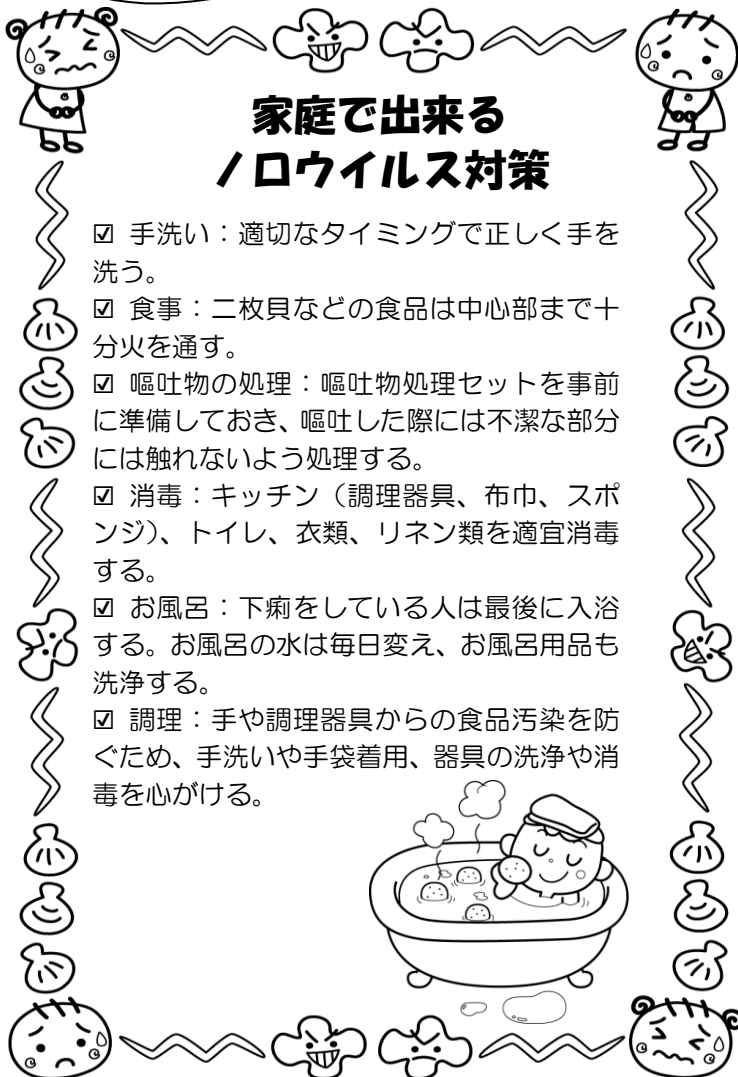 家庭で出来る
ノロウイルス対策
☑ 手洗い：適切なタイミングで正しく手を
洗う。
☑ 食事：二枚貝などの食品は中心部まで十
分火を通す。
☑ 嘔吐物の処理：嘔吐物処理セットを事前
に準備しておき、嘔吐した際には不潔な部分
には触れないよう処理する。
☑ 消毒：キッチン（調理器具、布巾、スポ
ンジ）、トイレ、衣類、リネン類を適宜消毒
する。
☑ お風呂：下痢をしている人は最後に入浴
する。お風呂の水は毎日変え、お風呂用品も
洗浄する。
☑ 調理：手や調理器具からの食品汚染を防
ぐため、手洗いや手袋着用、器具の洗浄や消
毒を心がける。